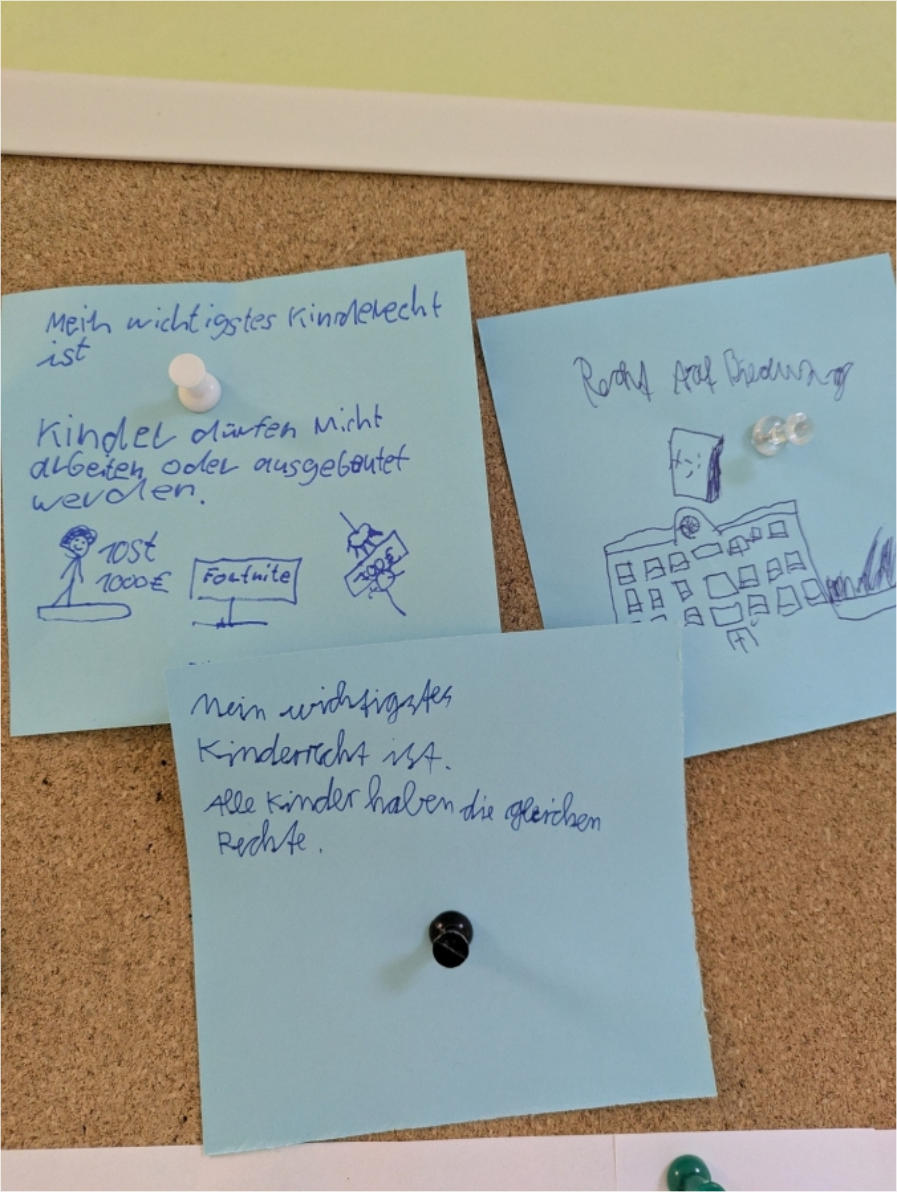 Mein wichtigstes Kinderecht
ist
Kinder dürfen nicht
arbeiten oder ausgebeutet
werden.
10St
1000€
Fortnite
Recht auf
Mein wichtigstes
Kinderrecht ist.
Alle Kinder haben die gleichen
Rechte.